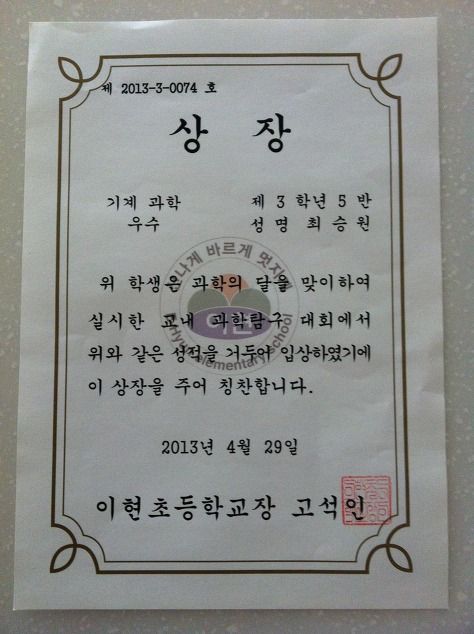 제 2013-3-0074 호
상 장
기계 과학 제 3 학년 5 반
우수 성 명 최 승 원
위 학생은 과학의 달을 맞이하여
실시한 교내 과학탐구 대회에서
위와 같은 성적을 거두어 입상하였기에
이 상장을 주어 칭찬합니다.
2013년 4월 29일
이현초등학교장 고석인
바르게 멋지게
이현
elementary school